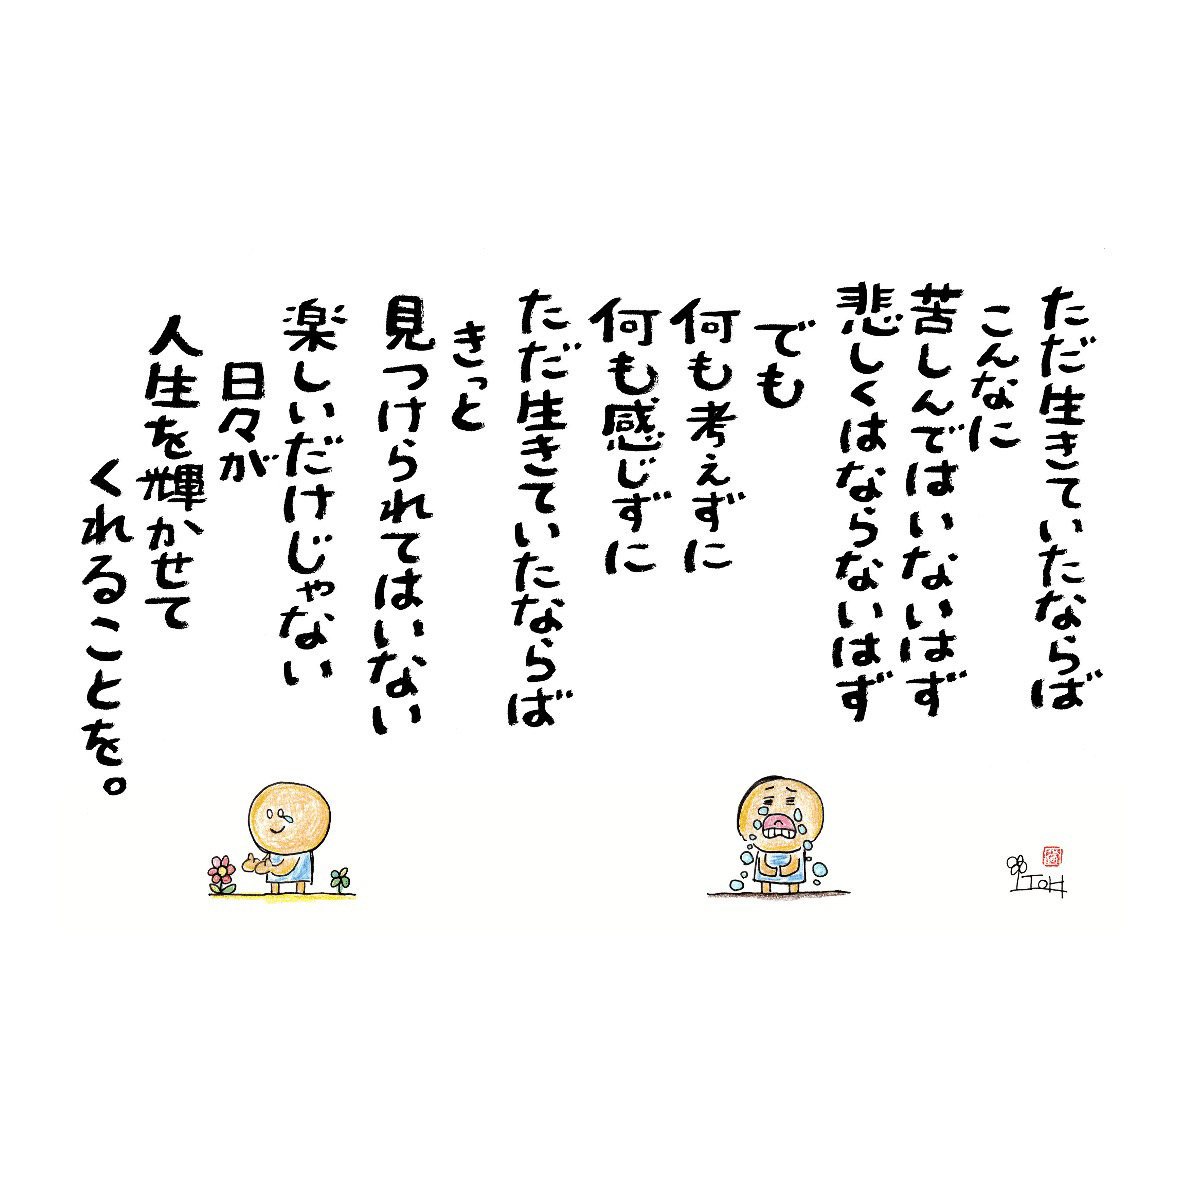 ただ生きていたならば
こんなに
苦しんではいないはず
悲しくはならないはず
でも
何も考えずに
何も感じずに
ただ生きていたならば
きっと
見つけられてはいない
楽しいだけじゃない
日々が
人生を輝かせて
くれることを。